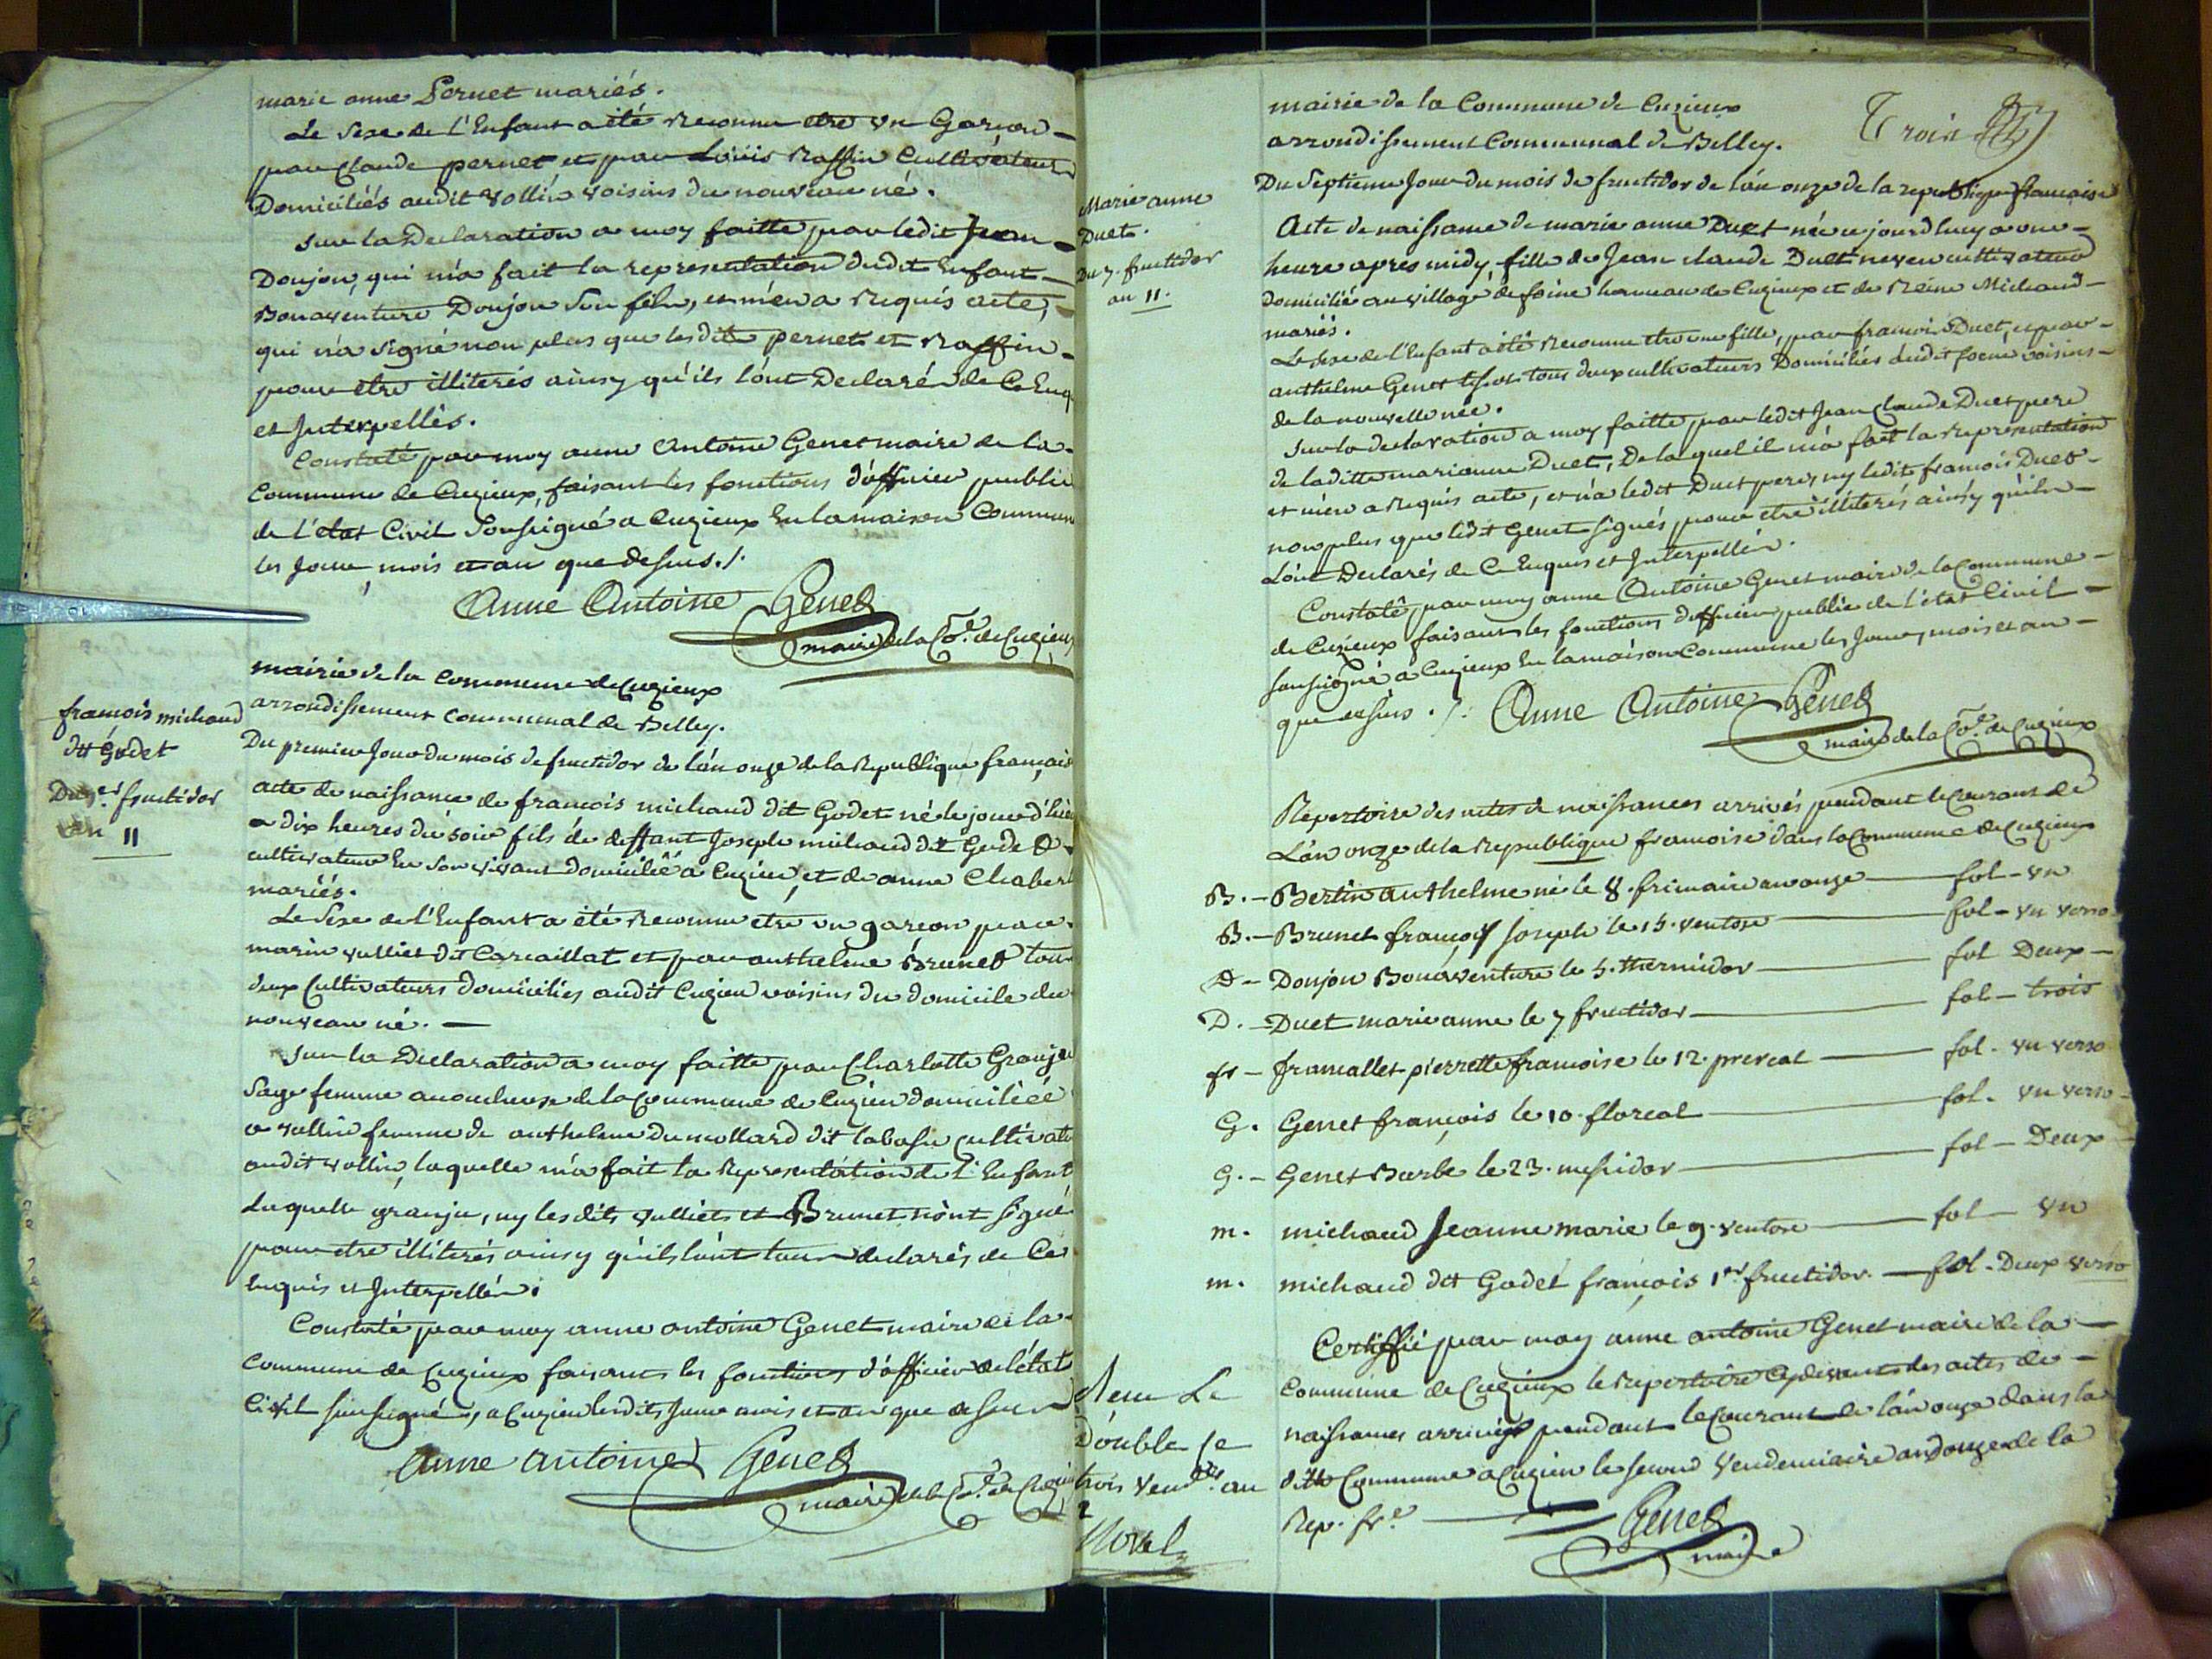 marie anne Pernet mariés.
Le Sexe de l'Enfant a été Reconnu etre un Garcon
par Claude pernet et par Louis Raffin Cultivateurs
Domiciliés audit vollin voisins du nouveau né.
Sur la Declaration a moy faitte par ledit Jean
Donjon, qui m'a fait la representation dudit Enfant
Bonaventure Donjon Son fils, et m'en a Requis acte,
qui n'a signé non plus que lesdits pernet et Raffin
pour etre illiterés ainsy qu'ils l'ont Declaré de Ce Enq
et Interpellés.
Constaté par moy anne Antoine Genet maire de la
Commune de Cuzieux, faisant les fonctions d'officier public
de l'etat Civil Soussigné a Cuzieux En la maison Commun
les Jour, mois et an que dessus ./.
Anne Antoine Genet
maire de la Cõe. de Cuzieux
mairie de la Commune de Cuzieux
arrondissement Communal de Belley.
françois michaud
dit Godet
Du 1er. fructidor
an 11
Du premier Jour du mois de fructidor de l'an onze de la Republique français
acte de naissance de françois michaud dit Godet né le jour d'hier
a dix heures du soir fils de deffunt Joseph michaud dit Godet
cultivateur En son vivant domicilié a Cuzieu, et de anne Chabert
mariés.
Le Sexe de l'Enfant a été Reconnu etre un garcon par
marin vulliet dit Carcaillat et par anthelme Brunet tous
deux Cultivateurs domiciliés audit Cuzieu voisins du domicile du
nouveau né. —
Sur la Declaration a moy faitte par Charlotte Granje
Sage femme accoucheuse de la Commune de Cuzieu domiciliéé
a vollin femme de anthelme Dumollard dit labasse Cultivat
audit vollin, laquelle m'a fait la Representation de l'Enfant
Laquelle granje, ny lesdits vulliet et Brunet n'ont signé
pour etre illiterés ainsy qu'ils l'ont tous declarés de Ce
enquis et Interpellés.
Constaté par moy anne antoine Genet maire de la
Commune de Cuzieux faisant les fonctions d'officier de l'état
Civil soussigné, a Cuzieu lesdits Jour mois et an que dessus
Anne antoine Genet
maire de la Cõe. de Cuzieu
mairie de la Commune de Cuzieux
arrondissement Communal de Belley.
Trois
Marie anne
Duet.
Du 7. fructidor
an 11.
Du Septieme Jour du mois de fructidor de l'an onze de la republique française
Acte de naissance de marie anne Duet née ce jourd'huy a une
heure apres midy, fille de Jean claude Duet neveu cultivateur
domicilié au village de foine hameau de Cuzieux et de Reine Michaud
mariés.
Le Sexe de l'Enfant a été Reconnu etre une fille, par françois Duet, et par
anthelme Genet tous deux cultivateurs Domiciliés dudit foine voisins
de la nouvelle née.
Sur la declaration a moy faitte par ledit Jean Claude Duet pere
de laditte marianne Duet, De laquel il m'a fait la Representation
et m'en a Requis acte, et n'a ledit Duet pere, ny ledit françois Duet
non plus que ledit Genet signés pour etre illiterés ainsy qu'ils
L'ont Declarés de Ce Enquis et Interpellés.
Constaté par moy anne Antoine Genet maire de la Commune
de Cuzieux faisant les fonctions d'officier public de l'état Civil
soussigné a Cuzieux En la maison Commune les Jour, mois et an
que dessus ./. Anne Antoine Genet
maire de la Cõe. de Cuzieux
Repertoire des actes de naissances arrivés pendant le Courant de
L'an onze de la Republique françoise dans la Commune de Cuzieux
B. — Bertin anthelme né le 8. frimaire an onze — fol — un
B. — Brunet françois Joseph le 15. ventose — fol — un verso
D — Donjon Bonaventure le 5. thermidor — fol Deux —
D. — Duet marie anne le 7 fructidor — fol — trois
fr — francallet pierrette françoise le 12. prereal — fol. un verso
G. Genet françois le 10. floreal — fol. un verso
G. — Genet Barbe le 23. messidor — fol — Deux
m. michaud Jeanne marie le 9. ventose — fol — un
m. michaud dit Godet françois 1er. fructidor — fol — Deux verso
Certiffié par moy anne antoine Genet maire de la
Commune de Cuzieux le repertoire Cy devant des actes de
naissances arrivés pendant le Courant de l'an onze dans la
ditte Commune a Cuzieu le second Vendemiaire an douze de la
Rep. fse.
Genet
maire
Le
Double le
trois Vend. an
Morel